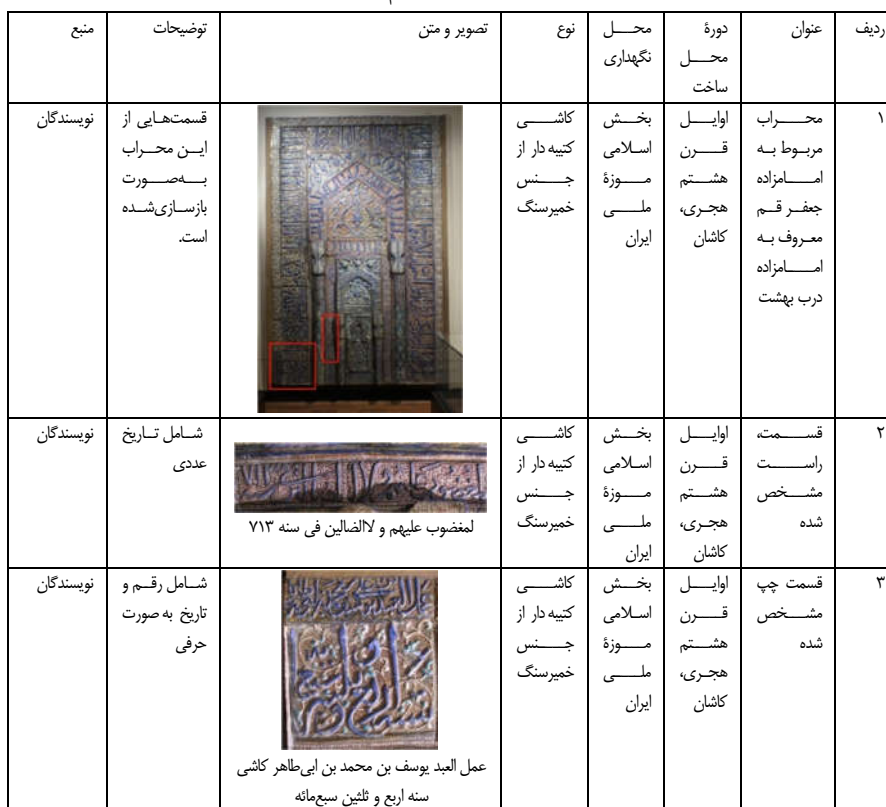 ردیف
عنوان
دورۀ
محل
ساخت
محل
نگهداری
نوع
تصویر و متن
توضیحات
منبع
۱
محراب
مربوط به
امامزاده
جعفر قم
معروف به
امامزاده
درب بهشت
اوایل
قرن
هشتم
هجری،
کاشان
بخش
اسلامی
موزۀ
ملی
ایران
کاشی
کتیبه دار از
جنس
خمیرسنگ
قسمت‌هایی از
این محراب
به‌صورت
بازسازی‌شده
است.
نویسندگان
۲
قسمت،
راست
مشخص
شده
اوایل
قرن
هشتم
هجری،
کاشان
بخش
اسلامی
موزۀ
ملی
ایران
کاشی
کتیبه دار از
جنس
خمیرسنگ
لمغضوب علیهم و لاالضالین فی سنه ۷۱۳
شامل تاریخ
عددی
نویسندگان
۳
قسمت چپ
مشخص
شده
اوایل
قرن
هشتم
هجری،
کاشان
بخش
اسلامی
موزۀ
ملی
ایران
کاشی
کتیبه دار از
جنس
خمیرسنگ
عمل العبد یوسف بن محمد بن ابی‌طاهر کاشی
سنه اربع و ثلثین سبع‌مائه
شامل رقم و
تاریخ به صورت
حرفی
نویسندگان